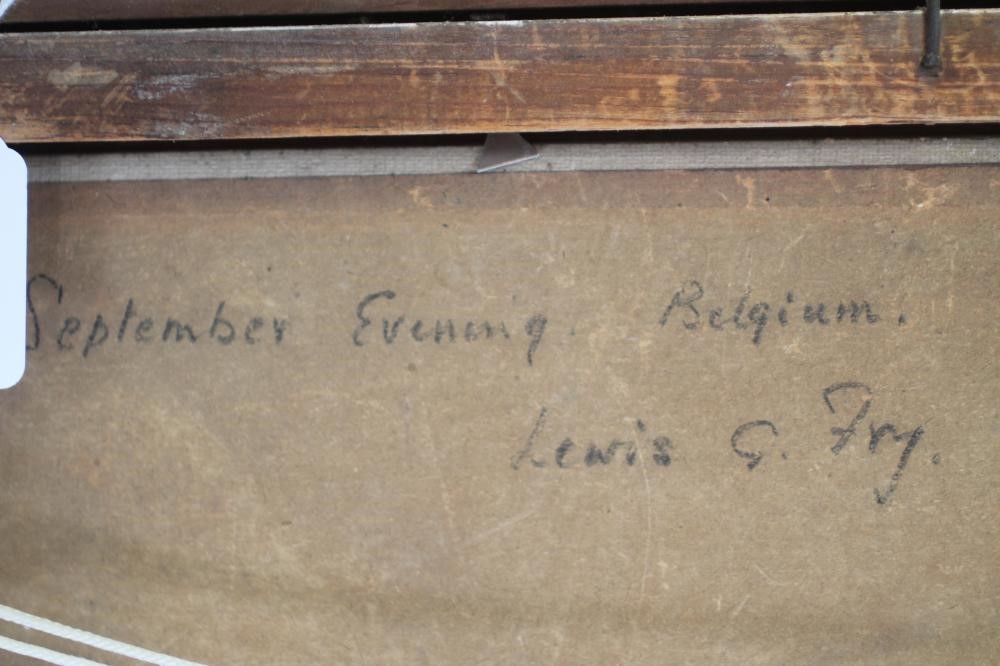 September Evening. Belgium.
Lewis G. Fry.